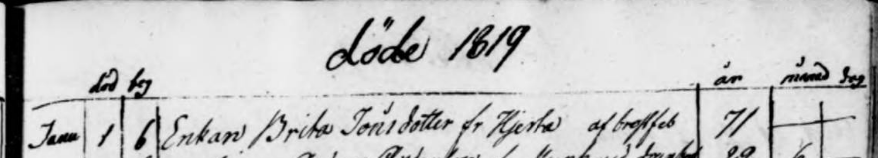 döde 1819
död beg år månad dag
Janu 1 6 Enkan Brita Jönsdotter fr Hjerta af bröstfeb 71
29 6